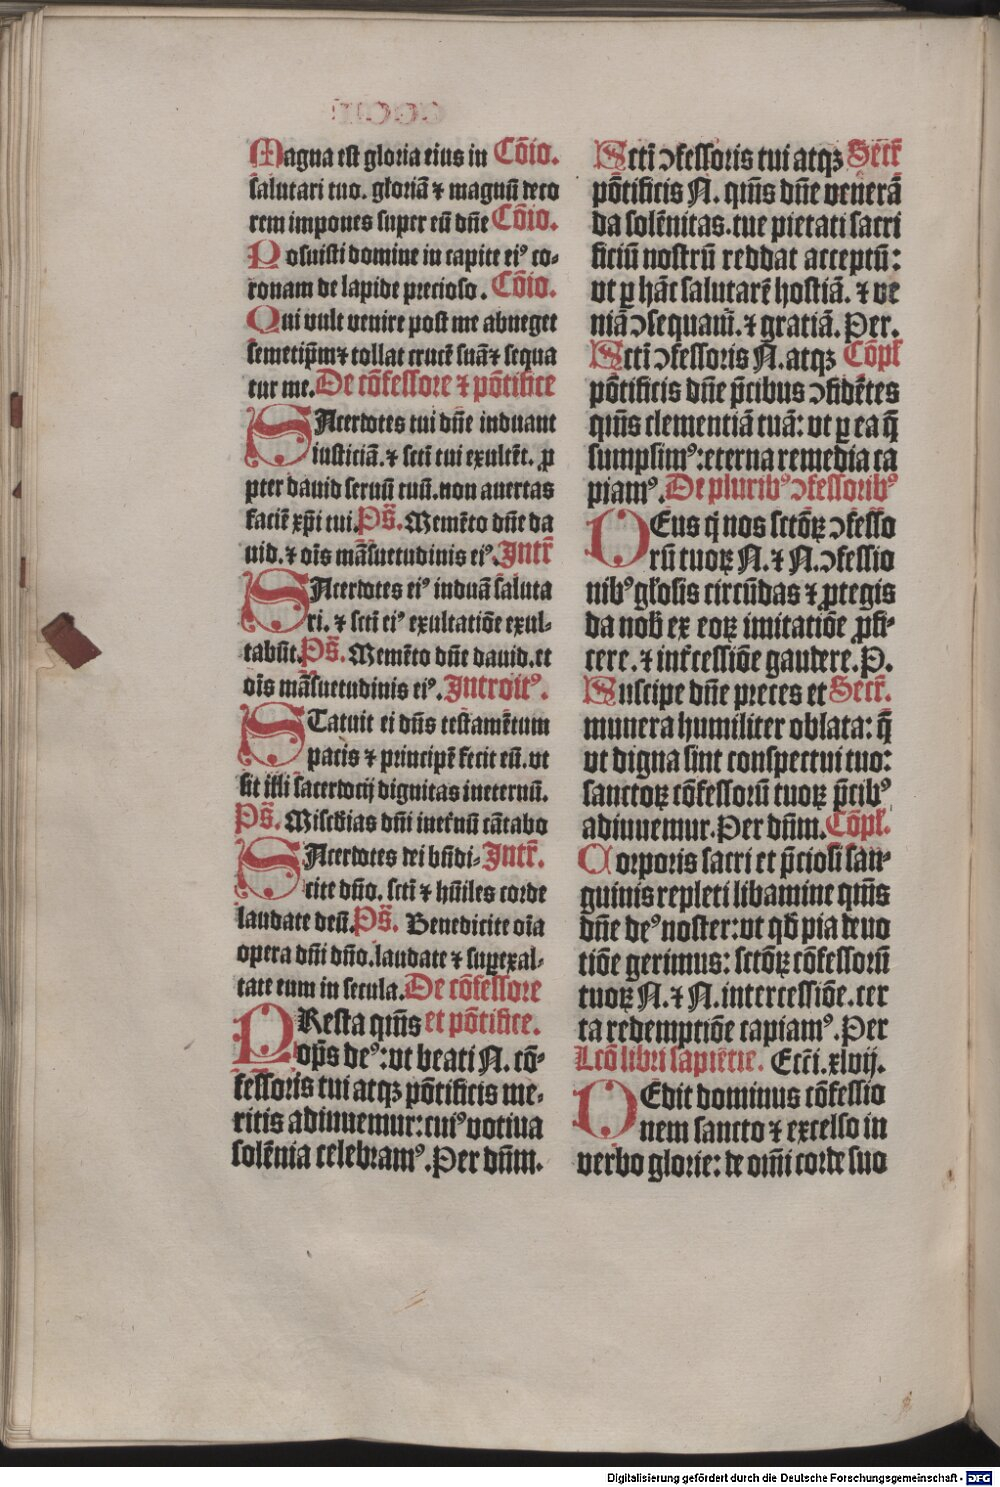 Magna est gloria eius in Cõio.
salutari tuo. gloriã ⁊ magnũ deco
rem impones super eũ dñe Cõio.
Posuisti domine in capite ei⁹ co-
ronam de lapide precioso. Cõio.
Qui vult venire post me abneget
semetip̃m ⁊ tollat crucẽ suã ⁊ sequa
tur me. De cõfessore ⁊ põtifice
SAcerdotes tui dñe induant
iusticiã. ⁊ scti tui exultẽt. ꝓ
pter dauid seruũ tuũ. non auertas
faciẽ xp̃i tui. Ps̃. Memẽto dñe da
uid. ⁊ oĩs mãsuetudinis ei⁹. Intr̃
SAcerdotes ei⁹ induã saluta
ri. ⁊ scti ei⁹ exultatiõe exul-
tabũt. Ps̃. Memẽto dñe dauid. et
oĩs mãsuetudinis ei⁹. Introit⁹.
STatuit ei dñs testamẽtum
pacis ⁊ principẽ fecit eũ. vt
sit illi sacerdocij dignitas ineternũ.
Ps̃. Misc̃dias dñi inet̃nũ cãtabo
SAcerdotes dei bñdi- Intr̃.
cite dño. scti ⁊ hũiles corde
laudate deũ. Ps̃. Benedicite oĩa
opera dñi dño. laudate ⁊ suꝑexal-
tate eum in secula. De cõfessore
PResta qũs et põtifice.
op̃s de⁹: vt beati N. cõ-
fessoris tui atqꝫ põtificis me-
ritis adiuuemur: cui⁹ votiua
solẽnia celebram⁹. Per dñm.
Scti ↄfessoris tui atqꝫ Secr̃
põtificis N. qũs dñe venerã
da solẽnitas. tue pietati sacri
ficiũ nostrũ reddat acceptũ:
vt ꝑ hãc salutarẽ hostiã. ⁊ ve
niã ↄsequam̃. ⁊ gratiã. Per.
Scti ↄfessoris N. atqꝫ Cõpl̃
põtificis dñe p̃cibus ↄfidẽtes
qũs clementiã tuã: vt ꝑ ea q̃
sumpsim⁹: eterna remedia ca
piam⁹. De plurib⁹ ↄfessorib⁹
DEus q̃ nos sctõꝝ ↄfesso
rũ tuoꝝ N. ⁊ N. ↄfessio
nib⁹ gl̃osis circũdas ⁊ ꝓtegis
da nob̃ ex eoꝝ imitatiõe ꝓfi-
cere. ⁊ int̃cessiõe gaudere. P.
Suscipe dñe preces et Secr̃.
munera humiliter oblata: q̃
vt digna sint conspectui tuo:
sanctoꝝ cõfessorũ tuoꝝ p̃cib⁹
adiuuemur. Per dñm. Cõpl̃.
Corporis sacri et p̃ciosi san-
guinis repleti libamine qũs
dñe de⁹ noster: vt qd̃ pia deuo
tiõe gerimus: sctõꝝ cõfessorũ
tuoꝝ N. ⁊ N. intercessiõe. cer
ta redemptiõe capiam⁹. Per
Lcõ libri sapiẽtie. Ecc̃i. xlvij.
DEdit dominus cõfessio
nem sancto ⁊ excelso in
verbo glorie: de om̃i corde suo
Digitalisierung gefördert durch die Deutsche Forschungsgemeinschaft - DFG